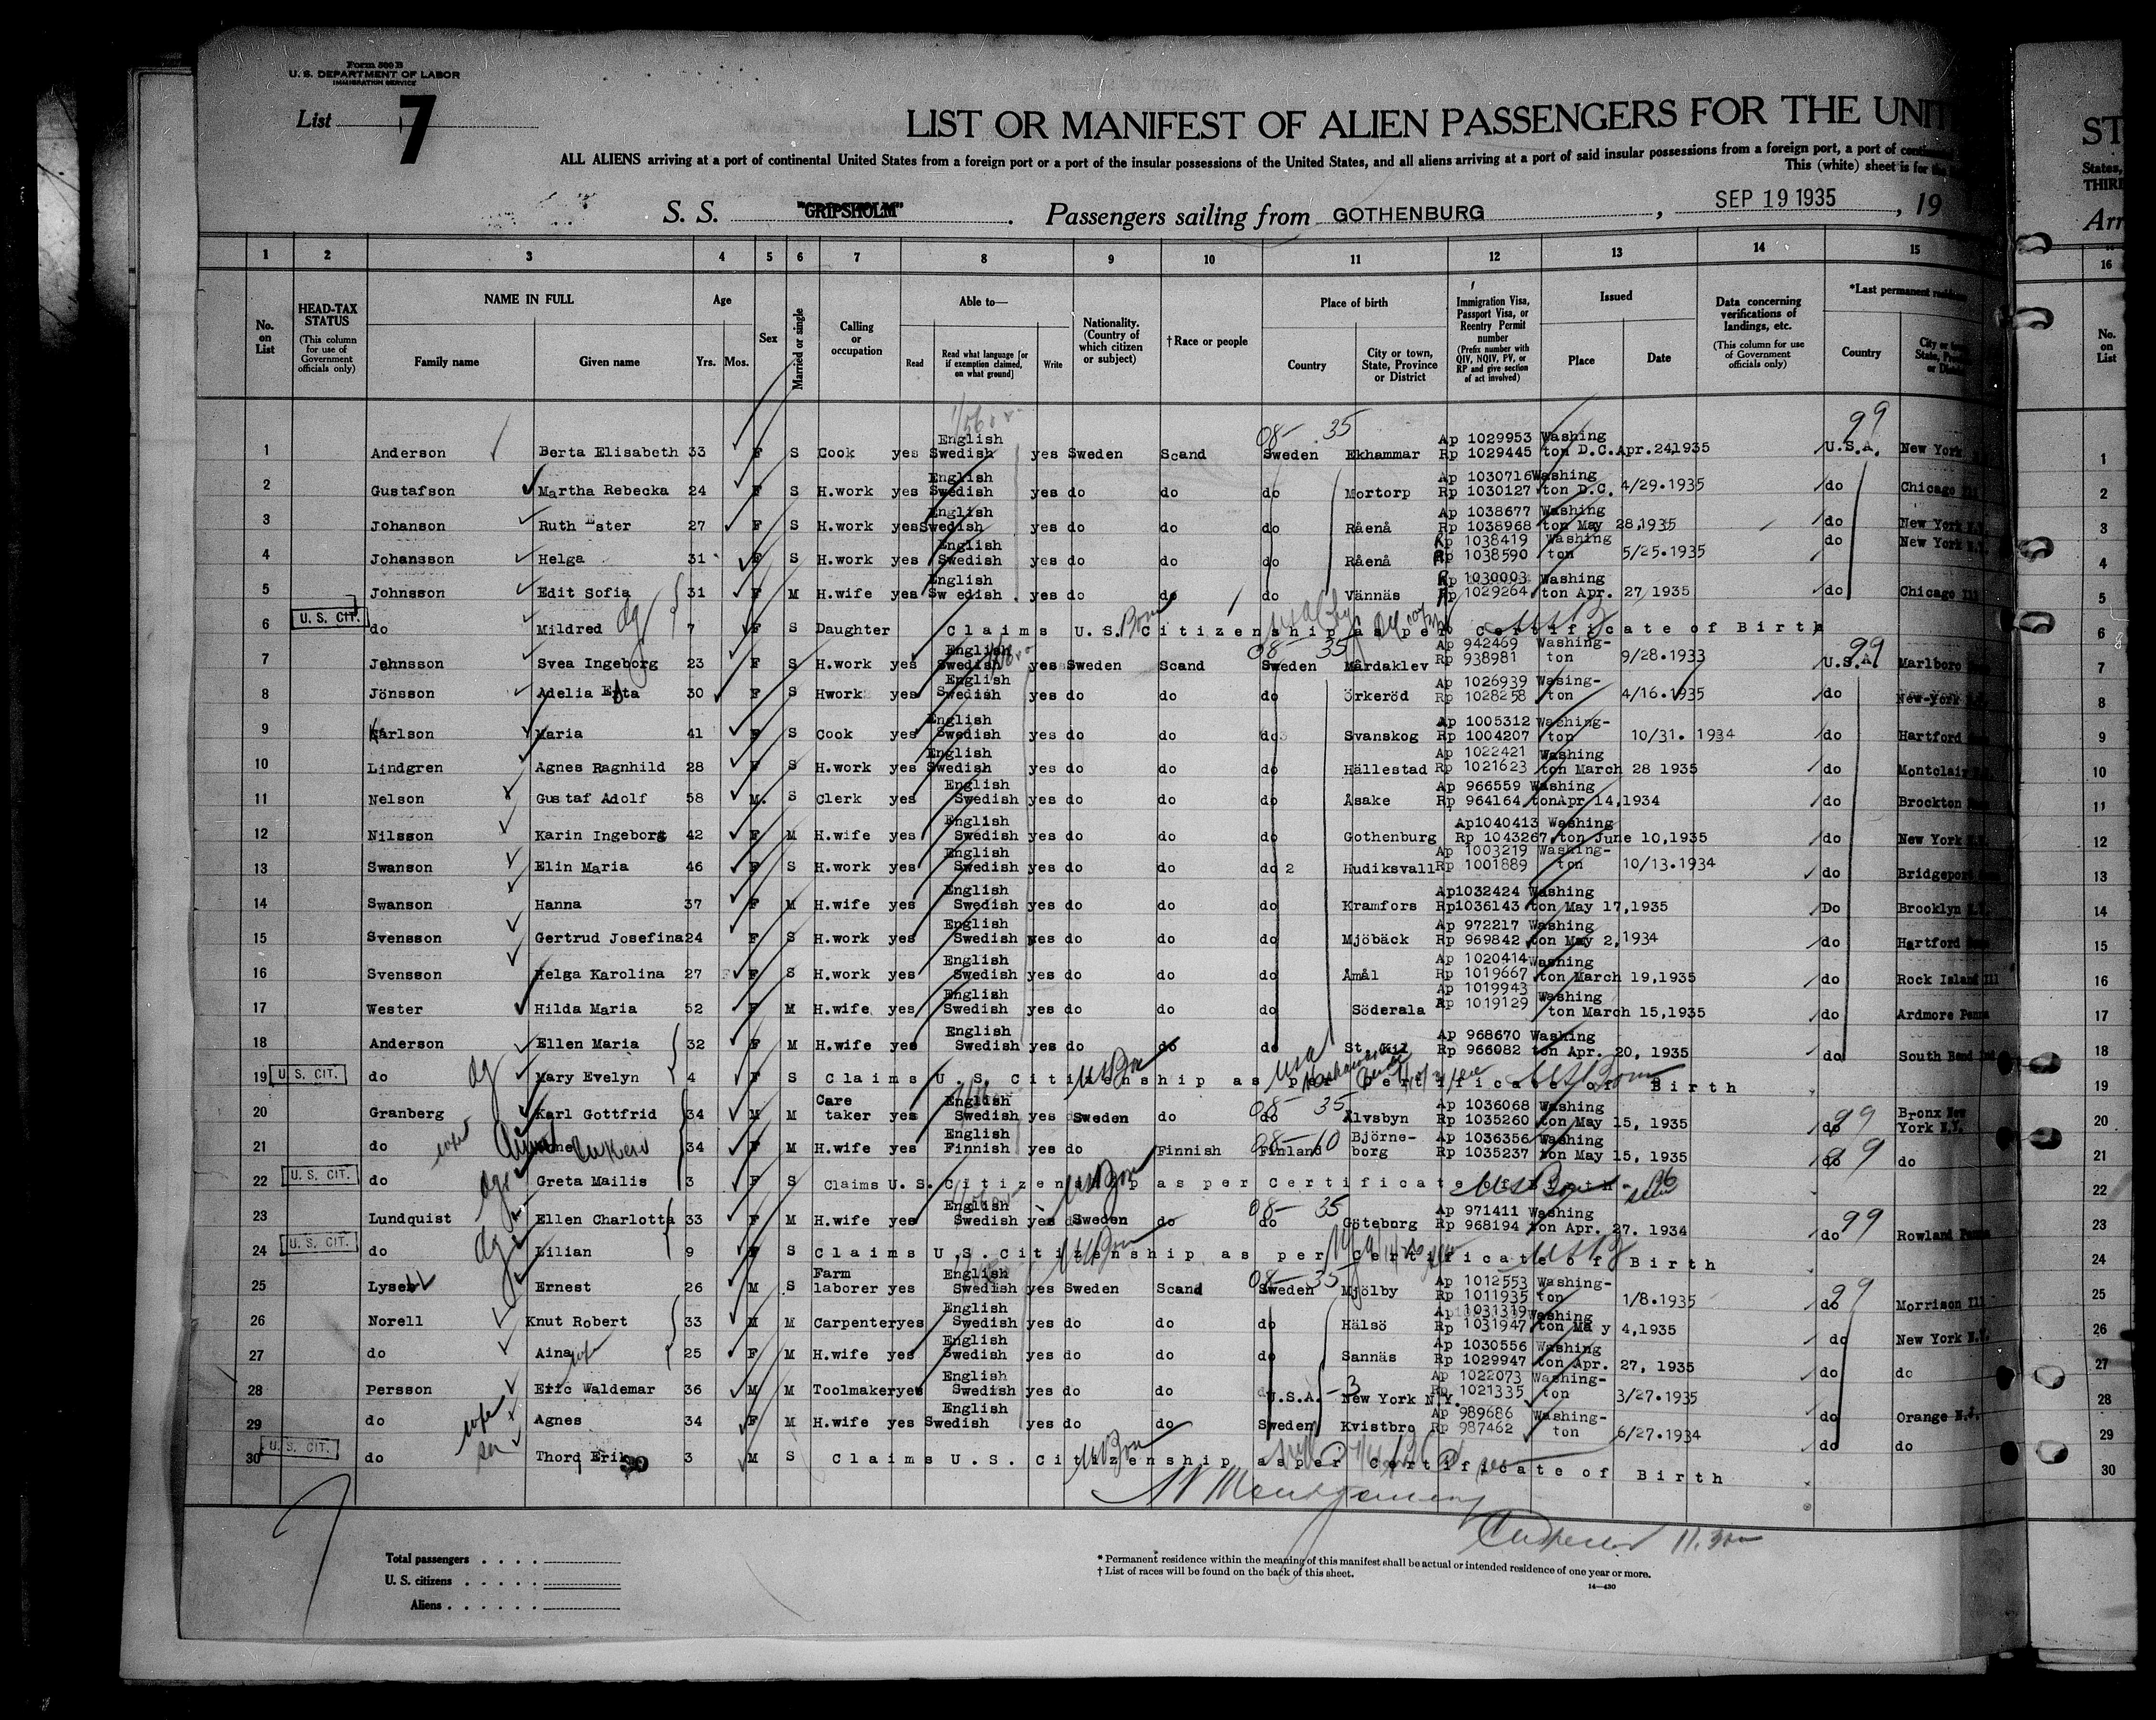 Form 500 B
U. S. DEPARTMENT OF LABOR
IMMIGRATION SERVICE
List 7
LIST OR MANIFEST OF ALIEN PASSENGERS FOR THE UNIT
ALL ALIENS arriving at a port of continental United States from a foreign port or a port of the insular possessions of the United States, and all aliens arriving at a port of said insular possessions from a foreign port, a port of
This (white) sheet is for
S. S. "GRIPSHOLM" Passengers sailing from GOTHENBURG, SEP 19 1935, 19
ST
States,
THIRD
Arr
1 2 3 4 5 6 7 8 9 10 11 12 13 14 15 16
No. on List
HEAD-TAX STATUS (This column for use of Government officials only)
NAME IN FULL Family name Given name
Age Yrs. Mos.
Sex
Married or single
Calling or occupation
Able to— Read Read what language [or if exemption claimed, on what ground] Write
Nationality. (Country of which citizen or subject)
†Race or people
Place of birth Country City or town, State, Province or District
Immigration Visa, Passport Visa, or Reentry Permit number (Prefix number with QIV, NQIV, PV, or RP and give section of act involved)
Issued Place Date
Data concerning verifications of landings, etc. (This column for use of Government officials only)
*Last permanent Country
No. on List
1 Anderson Berta Elisabeth 33 F S Cook yes English Swedish yes Sweden Scand 08— 35 Sweden Ekhammar Ap 1029953 Rp 1029445 Washing ton D.C. Apr.24,1935 99 U.S.A. New York 1
2 Gustafson Martha Rebecka 24 F S H.work yes English Swedish yes do do do Mortorp Ap 1030716 Rp 1030127 Washing ton D.C. 4/29.1935 do Chicago Ill 2
3 Johanson Ruth Ester 27 F S H.work yes English Swedish yes do do do Råenå Ap 1038677 Rp 1038968 Washing ton May 28,1935 do New York N.Y. 3
4 Johansson Helga 31 F S H.work yes English Swedish yes do do do Råenå Rp 1038419 Rp 1038590 Washing ton 5/25.1935 do New York N.Y. 4
5 Johnsson Edit Sofia 31 F M H.wife yes English Swedish yes do do do Vännäs Rp 1030003 Rp 1029264 Washing ton Apr. 27 1935 do Chicago Ill 5
6 U. S. CIT. do Mildred dg 7 F S Daughter Claims U.S. Citizenship as per Certificate of Birth 6
7 Johnsson Svea Ingeborg 23 F S H.work yes English Swedish yes Sweden Scand 08— 35 Sweden Mårdaklev Ap 942469 Rp 938981 Washing-ton 9/28.1933 99 U.S.A. Marlboro 7
8 Jönsson Adelia 30 F S Hwork yes English Swedish yes do do do Örkeröd Ap 1026939 Rp 1028258 Wasing-ton 4/16.1935 do New-York 8
9 Karlson Maria 41 F S Cook yes English Swedish yes do do do Svanskog Ap 1005312 Rp 1004207 Washing-ton 10/31. 1934 do Hartford 9
10 Lindgren Agnes Ragnhild 28 F S H.work yes English Swedish yes do do do Hällestad Ap 1022421 Rp 1021623 Washing ton March 28 1935 do Montclair 10
11 Nelson Gustaf Adolf 58 M. S Clerk yes English Swedish yes do do do Åsake Ap 966559 Rp 964164 Washing tonApr 14,1934 do Brockton 11
12 Nilsson Karin Ingeborg 42 F M H.wife yes English Swedish yes do do do Gothenburg Ap1040413 Rp 1043267 Washing ton June 10,1935 do New York N.Y. 12
13 Swanson Elin Maria 46 F S H.work yes English Swedish yes do do do 2 Hudiksvall Ap 1003219 Rp 1001889 Washing-ton 10/13.1934 do Bridgeport 13
14 Swanson Hanna 37 F M H.wife yes English Swedish yes do do do Kramfors Ap1032424 Rp1036143 Washing ton May 17,1935 Do Brooklyn N.Y. 14
15 Svensson Gertrud Josefina 24 F S H.work yes English Swedish yes do do do Mjöbäck Ap 972217 Rp 969842 Washing ton May 2,1934 do Hartford 15
16 Svensson Helga Karolina 27 F S H.work yes English Swedish yes do do do Åmål Ap 1020414 Rp 1019667 Washing ton March 19,1935 do Rock Island Ill 16
17 Wester Hilda Maria 52 F M H.wife yes English Swedish yes do do do Söderala Ap 1019943 Rp 1019129 Washing ton March 15,1935 do Ardmore Penna 17
18 Anderson Ellen Maria 32 F M H.wife yes English Swedish yes do do do St. Ap 968670 Rp 966082 Washing ton Apr. 20, 1935 do South Bend Ind 18
19 U. S. CIT. do dg Mary Evelyn 4 F S Claims U.S. Citizenship as per Certificate of Birth 19
20 Granberg Karl Gottfrid 34 M M Care taker yes English Swedish yes Sweden do 08— 35 do Älvsbyn Ap 1036068 Rp 1035260 Washing ton May 15, 1935 99 do Bronx New York N.Y. 20
21 do wife 34 F M H.wife yes English Finnish yes do Finnish 08—10 Finland Björne-borg Ap 1036356 Rp 1035237 Washing ton May 15, 1935 99 do do 21
22 U. S. CIT. do dg Greta Mailis 3 F S Claims U.S. Citizenship as per Certificate of Birth 22
23 Lundquist Ellen Charlotta 33 F M H.wife yes English Swedish yes Sweden do 08— 35 do Göteborg Ap 971411 Rp 968194 Washing ton Apr. 27. 1934 99 do Rowland Penna 23
24 U. S. CIT. do dg Lilian 9 F S Claims U.S. Citizenship as per Certificate of Birth 24
25 Lysell Ernest 26 M S Farm laborer yes English Swedish yes Sweden Scand 08— 35 Sweden Mjölby Ap 1012553 Rp 1011935 Washing-ton 1/8.1935 99 do Morrison Ill 25
26 Norell Knut Robert 33 M M Carpenter yes English Swedish yes do do do Hälsö Ap 1031319 Rp 1031947 Washing ton May 4,1935 do New York N.Y. 26
27 do Aina wife 25 F M H.wife yes English Swedish yes do do do Sannäs Ap 1030556 Rp 1029947 Washing ton Apr. 27, 1935 do do 27
28 Persson Eric Waldemar 36 M M Toolmaker yes English Swedish yes do do U.S.A. —3 New York N.Y. Ap 1022073 Rp 1021335 Washing-ton 3/27.1935 do Orange N.J. 28
29 do wife Agnes 34 F M H.wife yes English Swedish yes do do Sweden Kvistbro Ap 989686 Rp 987462 Washing-ton 6/27.1934 do do 29
30 U. S. CIT. do son Thord Erik 3 M S Claims U.S. Citizenship as per Certificate of Birth 30
Montgomery
Inspector
Total passengers . . . .
U. S. citizens . . . . .
Aliens . . . . . .
* Permanent residence within the meaning of this manifest shall be actual or intended residence of one year or more.
† List of races will be found on the back of this sheet.
14—430